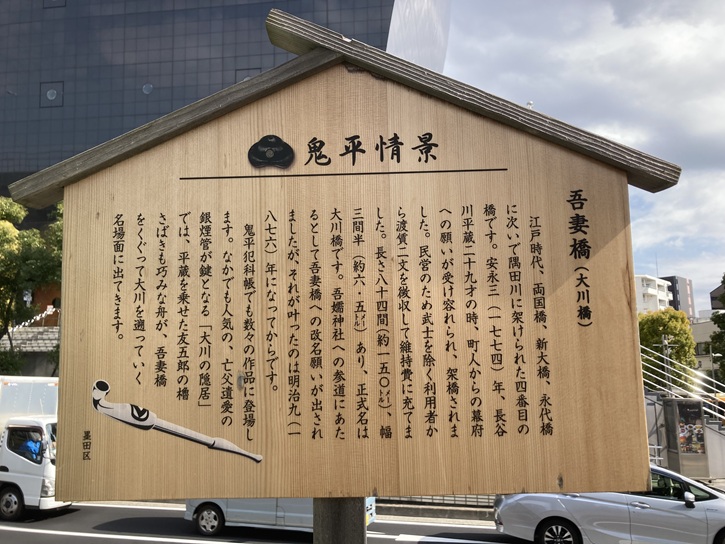 鬼平情景
吾妻橋(大川橋)
江戸時代、両国橋、新大橋、永代橋
に次いで隅田川に架けられた四番目の
橋です。安永三(一七七四)年、長谷
川平蔵二十九才の時、町人からの幕府
への願いが受け容れられ、架橋されま
した。民営のため武士を除く利用者か
ら渡賃二文を徴収して維持費に充てま
した。長さ八十四間(約一五〇メートル)、幅
三間半(約六・五メートル)あり、正式名は
大川橋です。吾嬬神社への参道にあた
るとして吾妻橋への改名願いが出され
ましたが、それが叶ったのは明治九(一
八七六)年になってからです。
鬼平犯科帳でも数々の作品に登場し
ます。なかでも人気の、亡父遺愛の
銀煙管が鍵となる「大川の隠居」
では、平蔵を乗せた友五郎の櫓
さばきも巧みな舟が、吾妻橋
をくぐって大川を遡っていく
名場面に出てきます。
墨田区